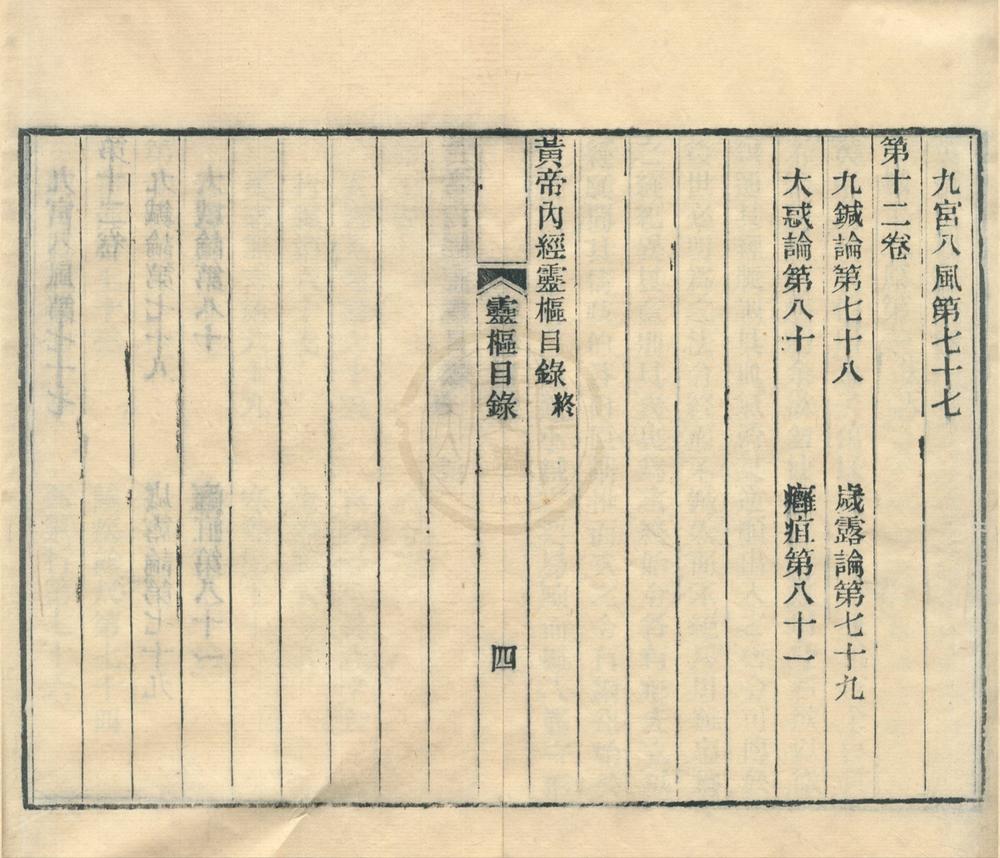 九宮八風第七十七
第十二卷
九鍼論第七十八　歲露論第七十九
大惑論第八十　癰疽第八十一
黃帝內經靈樞目錄終
靈樞目錄　四